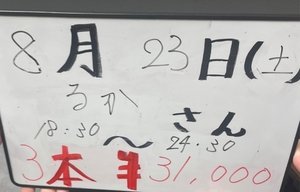 8月 23日(土)
るか さん
18:30 〜 24:30
3本 ¥31,000